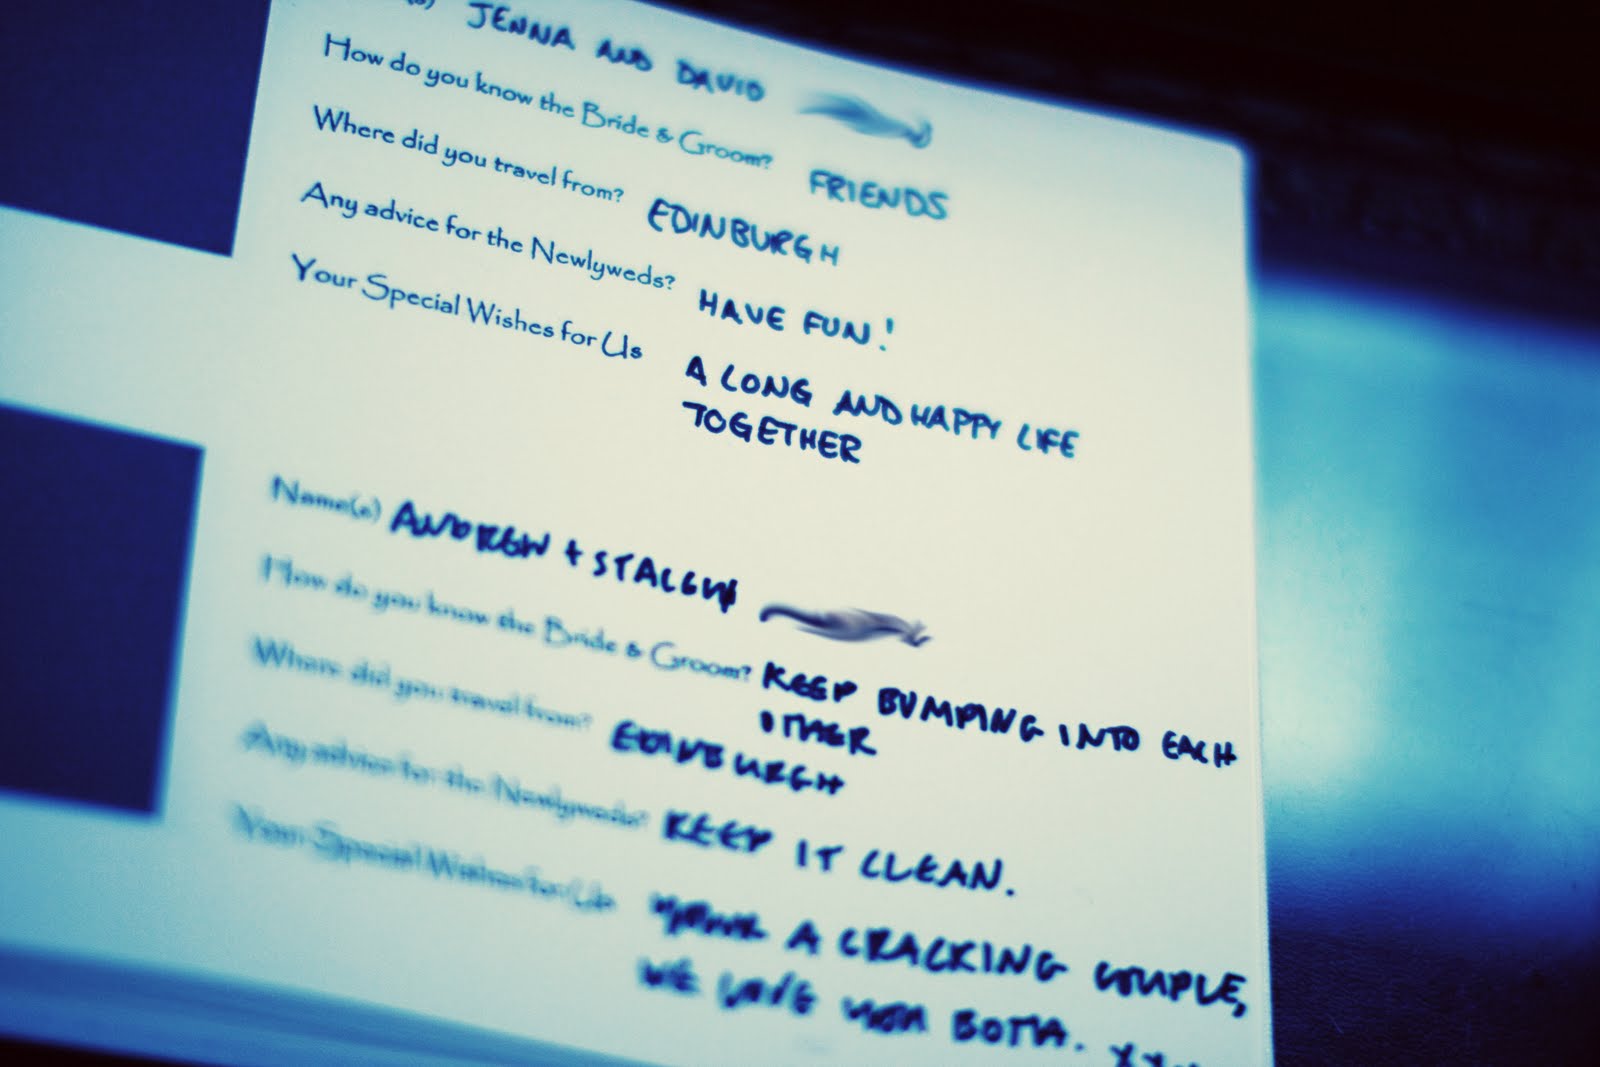 JENNA AND DAVID
How do you know the Bride & Groom? FRIENDS
Where did you travel from? EDINBURGH
Any advice for the Newlyweds? HAVE FUN!
Your Special Wishes for Us A LONG AND HAPPY LIFE
TOGETHER
Name(s) ANDREW +
How do you know the Bride & Groom? KEEP BUMPING INTO EACH
OTHER
Where did you travel from? EDINBURGH
Any advice for the Newlyweds? KEEP IT CLEAN.
Your Special Wishes for Us A CRACKING COUPLE,
WE LOVE YOU BOTH.